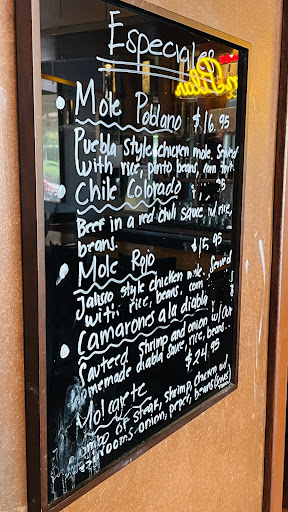 Especiales
Pilar
Mole Poblano $16.95
Puebla style chicken mole, Served
with rice, pinto beans, corn tort.
Chile Colorado .95
Beef in a red chili sauce w/ rice,
beans.
$15.95
Mole Rojo
Jalisco style chicken mole, Served
with rice, beans, corn
Camarones a la diabla
Sauteed Shrimp and onion w/ our
homemade diabla sauce, rice, beans..
$24.95
Molcajete
of steak, shrimp, chicken and
onion, peper, beans